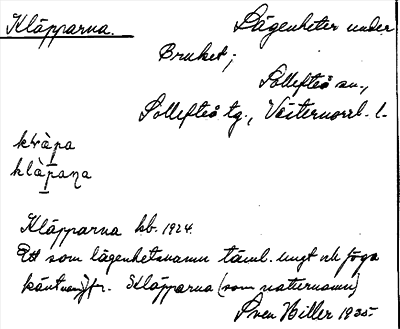 Kläpparna. Lägenheter under
Bruket;
Sollefteå sn.,
Sollefteå tg., Västernorrl. l.
klàpa
klàpaṇa
Kläpparna kb. 1924.
Ett som lägenhetsnamn täml. ungt och föga
känt namn, jfr. Kläpparna (som naturnamn)
Sven Hiller 1935